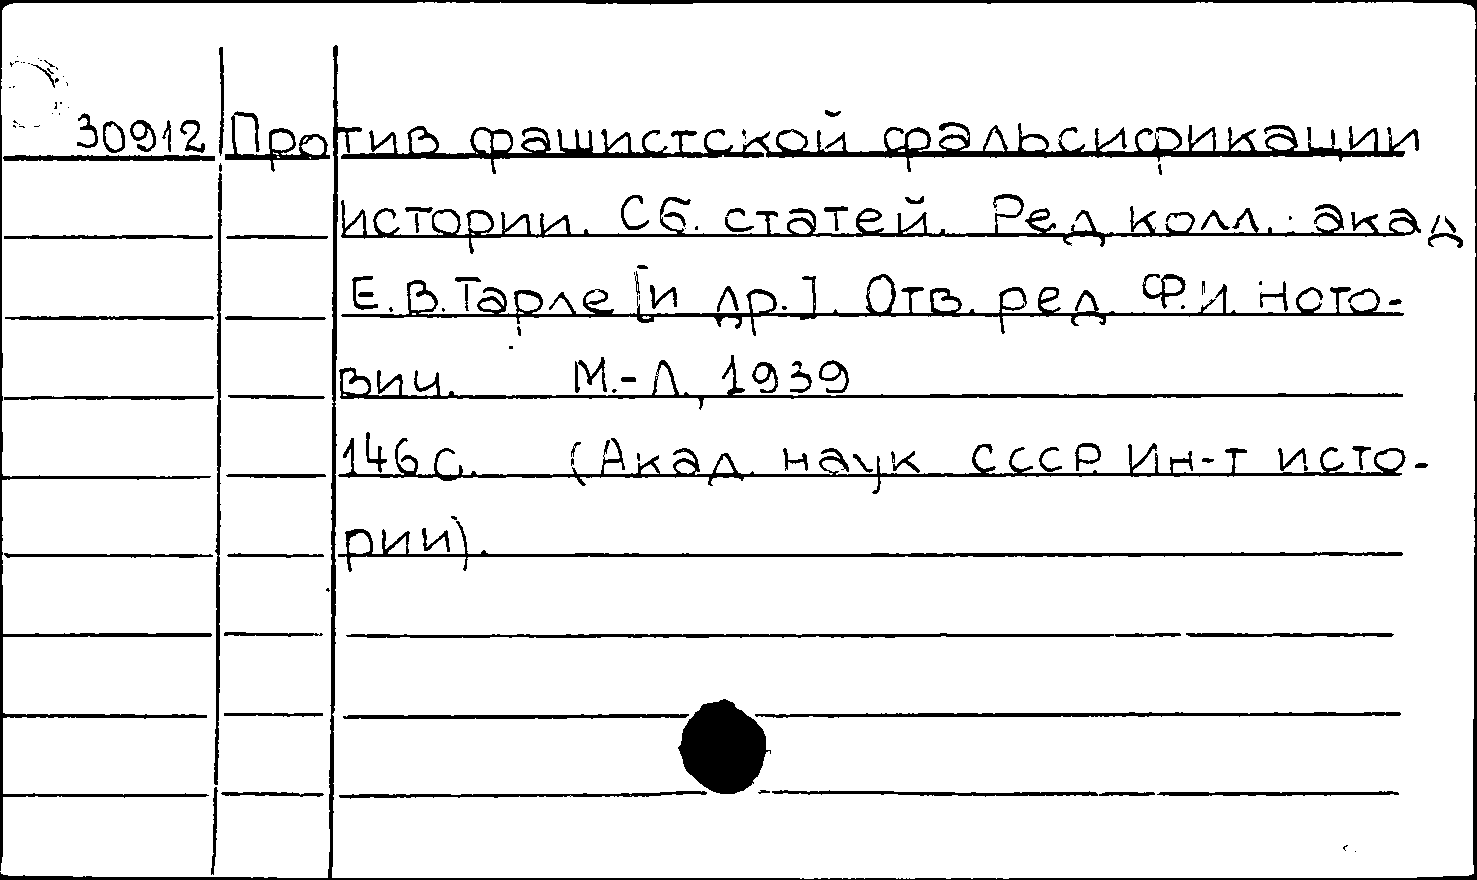 30912 Против фашистской фальсификации
истории. Сб. статей. Ред. колл.: акад
Е.В.Тарле [и др.]. Отв. ред. Ф.И. Ното-
вич. М.-Л., 1939
146 с. (Акад. наук СССР. Ин-т исто-
рии).